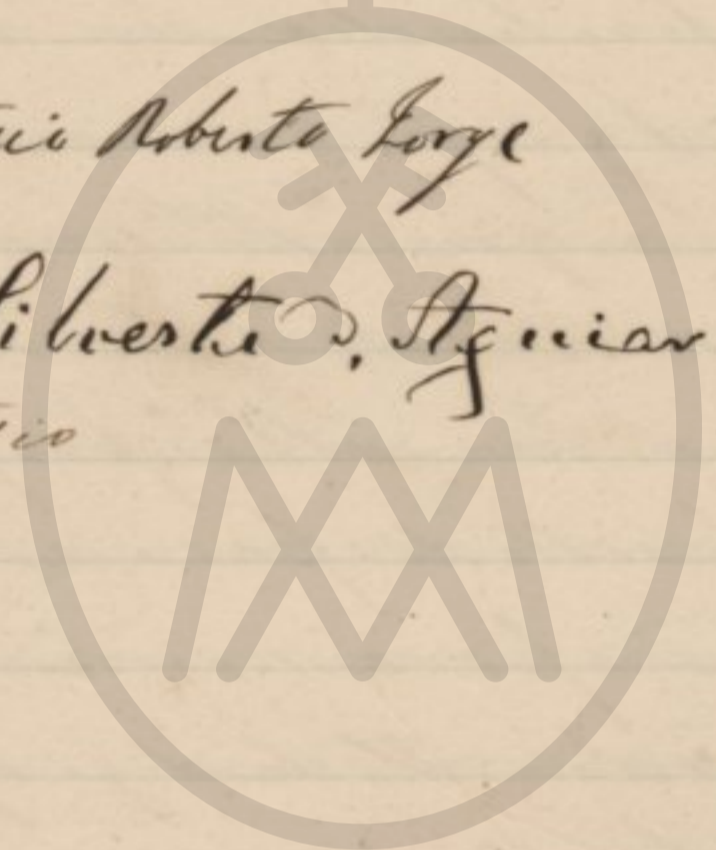 Roberto Jorge
Silvestre D. Aguiar